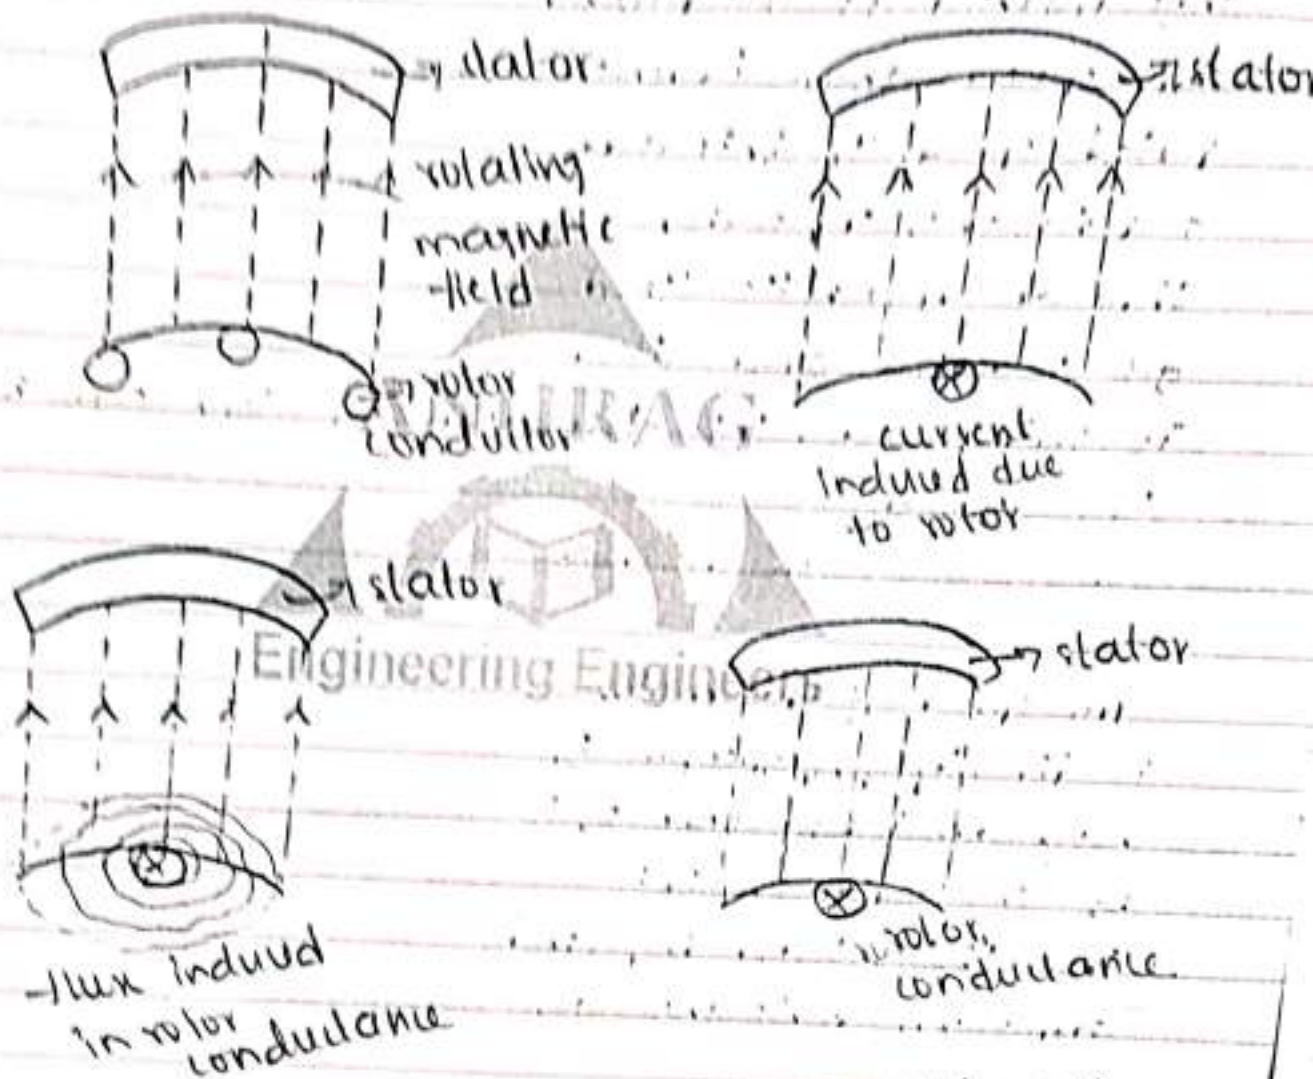 stator
stator
rotating
magnetic
field
rotor
conductor
current
induced due
to rotor
stator
Engineering Engineers
stator
flux induced
in rotor
conductance
rotor
conductance